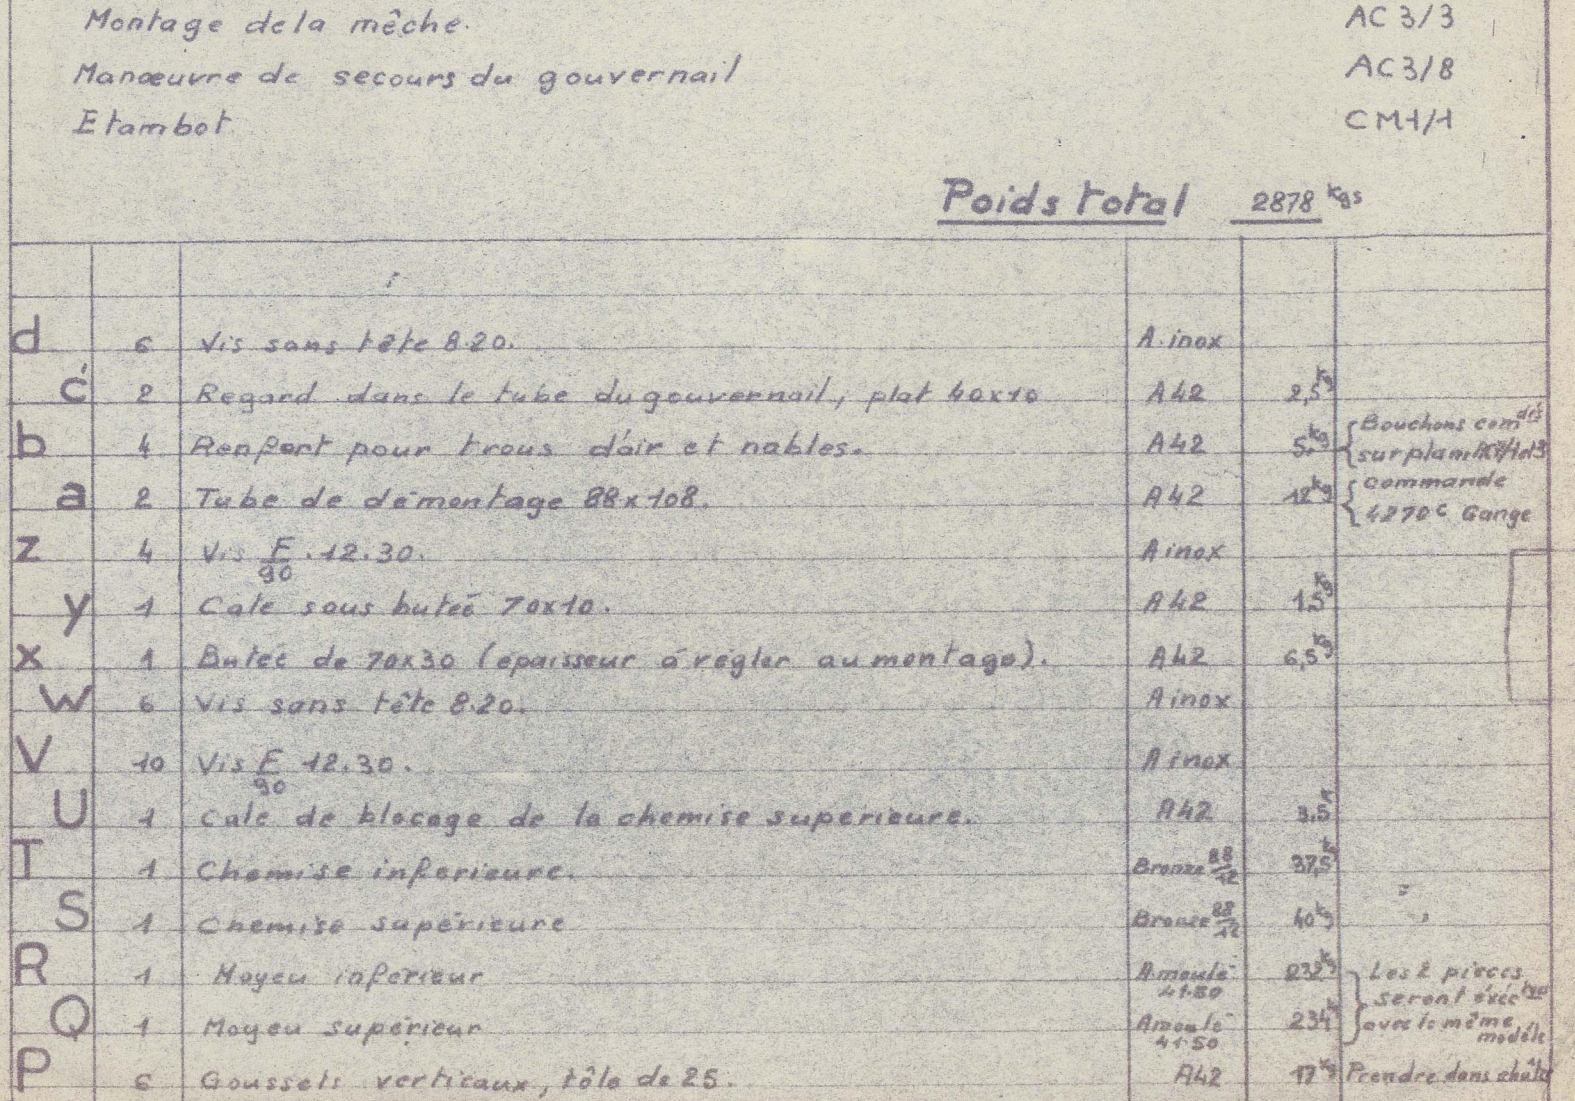 Montage de la mêche. AC 3/3
Manœuvre de secours du gouvernail AC 3/8
Etambot CM1/1
Poids total 2878 kgs
d 6 Vis sans tête 8.20. A.inox
c 2 Regard dans le tube du gouvernail, plat 40x10 A42 2,5 kg
b 4 Renfort pour trous d'air et nables. A42 5 kg Bouchons comdés
sur plan
a 2 Tube de démontage 88x108. A42 12 kg commande
4270 c Gange
z 4 Vis F/90 .12.30. A inox
y 1 Cale sous buteé 70x10. A42 1,5 kg
x 1 Buteé de 70x30 (épaisseur à régler au montage). A42 6,5 kg
w 6 Vis sans tête 8.20. A inox
V 10 Vis F/90 12.30. A inox
U 1 Cale de blocage de la chemise supérieure. A42 3,5 k
T 1 Chemise inférieure. Bronze 88/12 37,5 k
S 1 Chemise supérieure Bronze 88/12 40 kg
R 1 Moyeu inférieur A moulé 232 kg Les 2 pièces
41.50 seront
Q 1 Moyeu supérieur A moulé 234 k avec le même
41.50 modèle
P 6 Goussets verticaux, tôle de 25. A42 17 kg Prendre dans